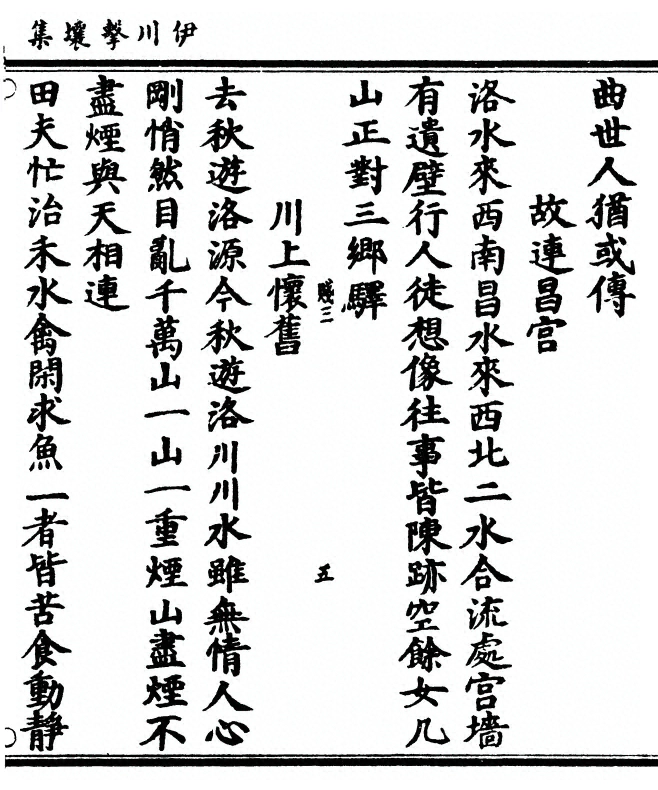 伊川擊壤集
曲世人猶或傳
故連昌宫
洛水來西南昌水來西北二水合流處宫墻
有遺壁行人徒想像往事皆陳跡空餘女几
山正對三鄉驛
賤三
五
川上懷舊
去秋遊洛源今秋遊洛川川水雖無情人心
剛悄然目亂千萬山一山一重煙山盡煙不
盡煙與天相連
田夫忙治禾水禽閑求魚一者皆苦食動靜